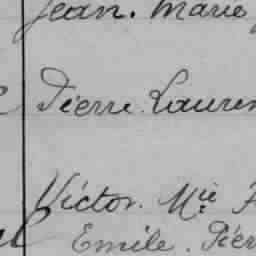 Jean. Marie
Pierre Lauren
Victor. Mie
Emile. Pier